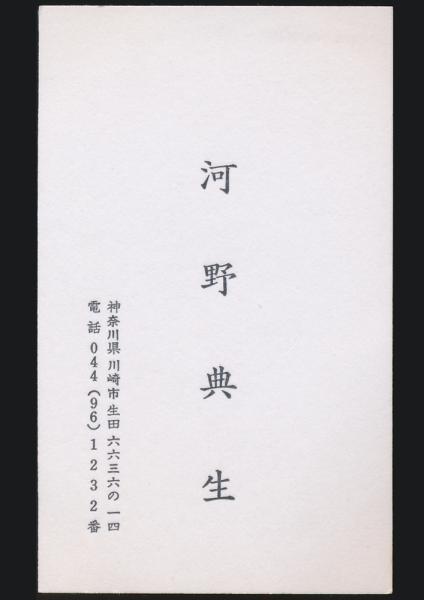 河野典生
神奈川県川崎市生田六六三六の一四
電話044(96)1232番